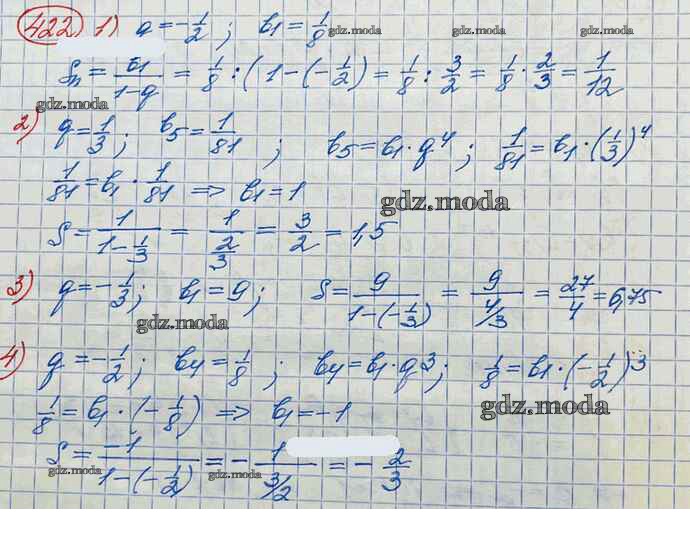 422 1) q = -1/2; b1 = 1/8 gdz.moda gdz.moda gdz.moda
Sn = b1/(1-q) = 1/8 : (1-(-1/2) = 1/8 : 3/2 = 1/8 · 2/3 = 1/12
gdz.moda
2) q = 1/3; b5 = 1/81; b5 = b1 · q^4; 1/81 = b1 · (1/3)^4
1/81 = b1 · 1/81 => b1 = 1
gdz.moda
S = 1/(1-1/3) = 1/(2/3) = 3/2 = 1,5
3) q = -1/3; b1 = 9; S = 9/(1-(-1/3)) = 9/(4/3) = 27/4 = 6,75
gdz.moda
4) q = -1/2; b4 = 1/8; b4 = b1 · q^3; 1/8 = b1 · (-1/2)^3
1/8 = b1 · (-1/8) => b1 = -1
gdz.moda
S = -1/(1-(-1/2)) = -1/(3/2) = -2/3
gdz.moda gdz.moda